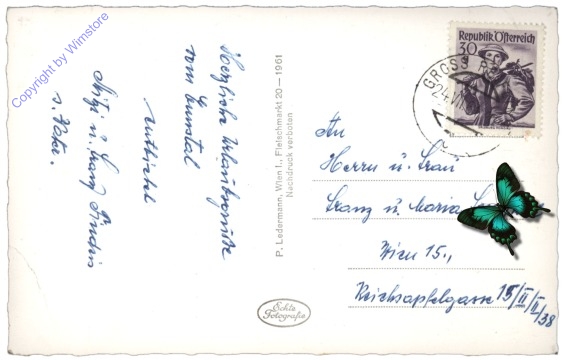 Copyright by Wimstore
Herzliche Urlaubsgrüße
vom Ennstal
Mitzi u. Franz
u. Vater.
P. Ledermann, Wien I., Fleischmarkt 20 — 1961
Nachdruck verboten
Echte
Fotografie
Republik Österreich
30
GROSS
24.VII
An
Herrn u. Frau
Franz u. Maria
Wien 15.,
Reichsapfelgasse 15/II/II/38